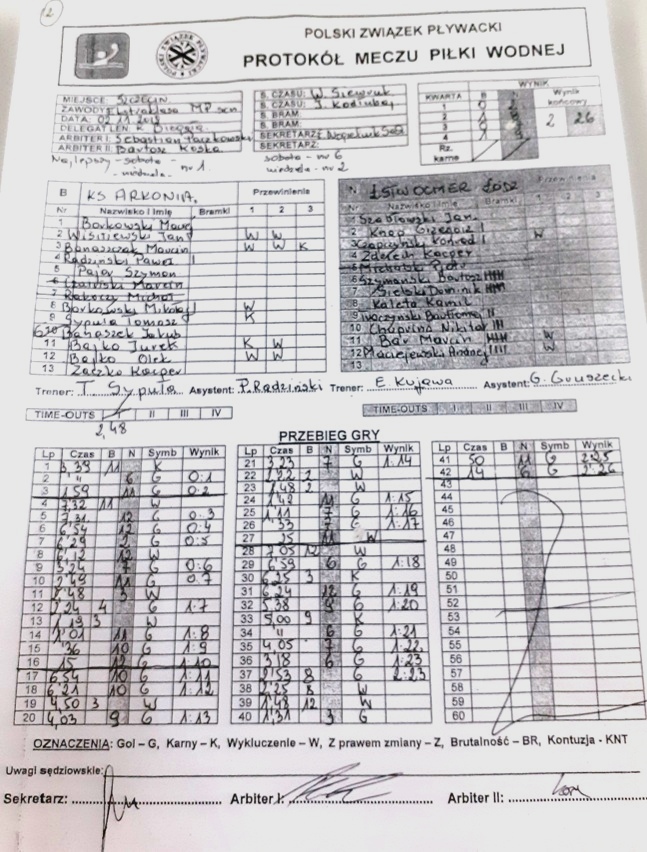 12
POLSKI ZWIĄZEK PŁYWACKI
PROTOKÓŁ MECZU PIŁKI WODNEJ
MIEJSCE: SZCZECIN
ZAWODY: Ekstraklasa MP sen
DATA: 02.11.2013
DELEGAT
ARBITER I: Sebastian Paczkowski
ARBITER II: Bartosz Koska
Najlepszy - sobota - nr 1
- niedziela -
S. CZASU: W. Siewruk
S. CZASU: J.
S. BRAM.
S. BRAM.
SEKRETARZ:
sobota - nr 6
niedziela - nr 2
WYNIK
KWARTA B N Wynik końcowy
1 0
2 1
3
4 1
Rz. karne
2 26
B KS ARKONIA Przewinienia
Nr Nazwisko i imię Bramki 1 2 3
1 Borkowski Maciej
2 Wiśniewski Jan W W
3 Banaszak Marcin W W K
4 Radziński Paweł I
5 Pajor Szymon
6 Marcin
7 Michał
8 Borkowski Mikołaj I W
9 Sypuła Tomasz K
10 Banaszek Jakub
11 Bajko Jurek K W
12 Bajko Olek W W
13 Kacper
N ŁSTW OCMER ŁÓDŹ Przewinienia
Nr Nazwisko i imię Bramki
1 Szablowski Jan
2 Knap Grzegorz I W
3 Konrad I
4 Kacper
5 Michalski Piotr
6 Szymański Bartosz
7 Sielski Dominik
8 Kaleta Kamil
9 Bartłomiej II
10 Nikita III
11 Bar Marcin W
12 Maciejewski Andrzej IIII W
13
Trener: T. Sypuła Asystent: P. Radziński Trener: E Kujawa Asystent: G. Gruszecki
TIME-OUTS I II III IV
2,48
TIME-OUTS I II III IV
PRZEBIEG GRY
Lp Czas B N Symb Wynik
1 3,39 11 K
2 " 6 G 0:1
3 1,59 11 G 0:2
4 7,32 11 W
5 12 G 0:3
6 6,54 12 G 0:4
7 6,29 2 G 0:5
8 6,12 12 W
9 3,24 7 G 0:6
10 2,49 11 G 0:7
11 2,48 3 W
12 2,24 4 G 1:7
13 1,19 3 W
14 1,01 11 G 1:8
15 36 10 G 1:9
16 15 12 G 1:10
17 6,54 10 G 1:11
18 6,21 10 G 1:12
19 4,50 3 W
20 4,03 9 G 1:13
Lp Czas B N Symb Wynik
21 3,23 7 G 1:14
22 2,22 2 W
23 1,48 2 W
24 1,42 11 G 1:15
25 1,11 7 G 1:16
26 33 7 G 1:17
27 25 11 W
28 7,05 12 W
29 6,59 6 G 1:18
30 6,25 3 K
31 6,24 12 G 1:19
32 5,38 9 G 1:20
33 5,00 9 K
34 " 6 G 1:21
35 4,05 7 G 1:22
36 3,18 6 G 1:23
37 2,53 8 G 2:23
38 2,25 8 W
39 1,48 12 W
40 1,31 3 G
Lp Czas B N Symb Wynik
41 50 11 G 2:25
42 14 6 G 2:26
43
44
45
46
47
48
49
50
51
52
53
54
55
56
57
58
59
60
OZNACZENIA: Gol – G, Karny – K, Wykluczenie – W, Z prawem zmiany – Z, Brutalność – BR, Kontuzja - KNT
Uwagi sędziowskie:
Sekretarz: Arbiter I: Arbiter II: